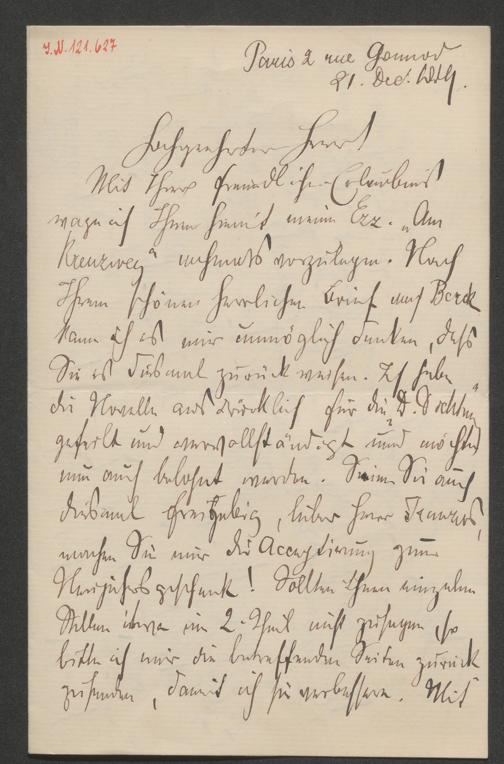 J.N. 121.627
Paris 2 rue Gounod
21. Dec.
Hochgeehrter Herr!
Mit Ihrer freundlichen Erlaubnis
wage ich Ihnen hiemit meine Erz. „Am
Kreuzweg“ nochmals vorzulegen. Nach
Ihrem schönen herrlichen Brief nach Berck
kann ich es mir unmöglich denken, daß
Sie es diesmal zurück weisen. Ich habe
die Novelle ausdrücklich für die „D. Dichtung“
gefeilt und vervollständigt und möchte
nun auch belohnt werden. Seien Sie auch
diesmal freigebig, lieber Herr Franzos,
machen Sie mir die Acceptirung zum
Neujahrsgeschenk! Sollten Ihnen einzelne
Stellen etwa im 2. Theil nicht zusagen so
bitte ich mir die betreffenden Seiten zurück
zusenden, damit ich sie verbessere. Mit